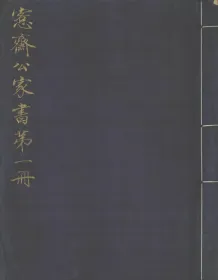 愙齋公家書第一冊